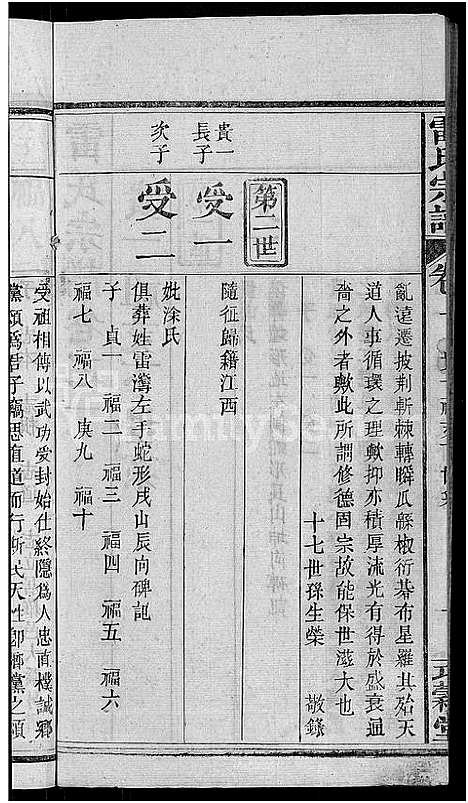 雷氏宗譜
亂遠遷披荆斬棘轉瞬瓜緜椒衍碁布星羅其殆天
道人事循環之理歟抑亦積厚流光有得於盛衰通
嗇之外者歟此所謂修德固宗故能保世滋大也
十七世孫生榮 敬錄
第二世
貴一長子
受一
隨征歸籍江西
次子
受二
妣涂氏
俱葬姓雷灣左手蛇形戌山辰向碑誌
子 貞一 福二 福三 福四 福五 福六
福七 福八 庚九 福十
受祖相傳以武功爱封始仕終隱爲人忠直樸誠鄉
黨頌爲君子竊思直道而行斯民天性卽鄉黨之頌